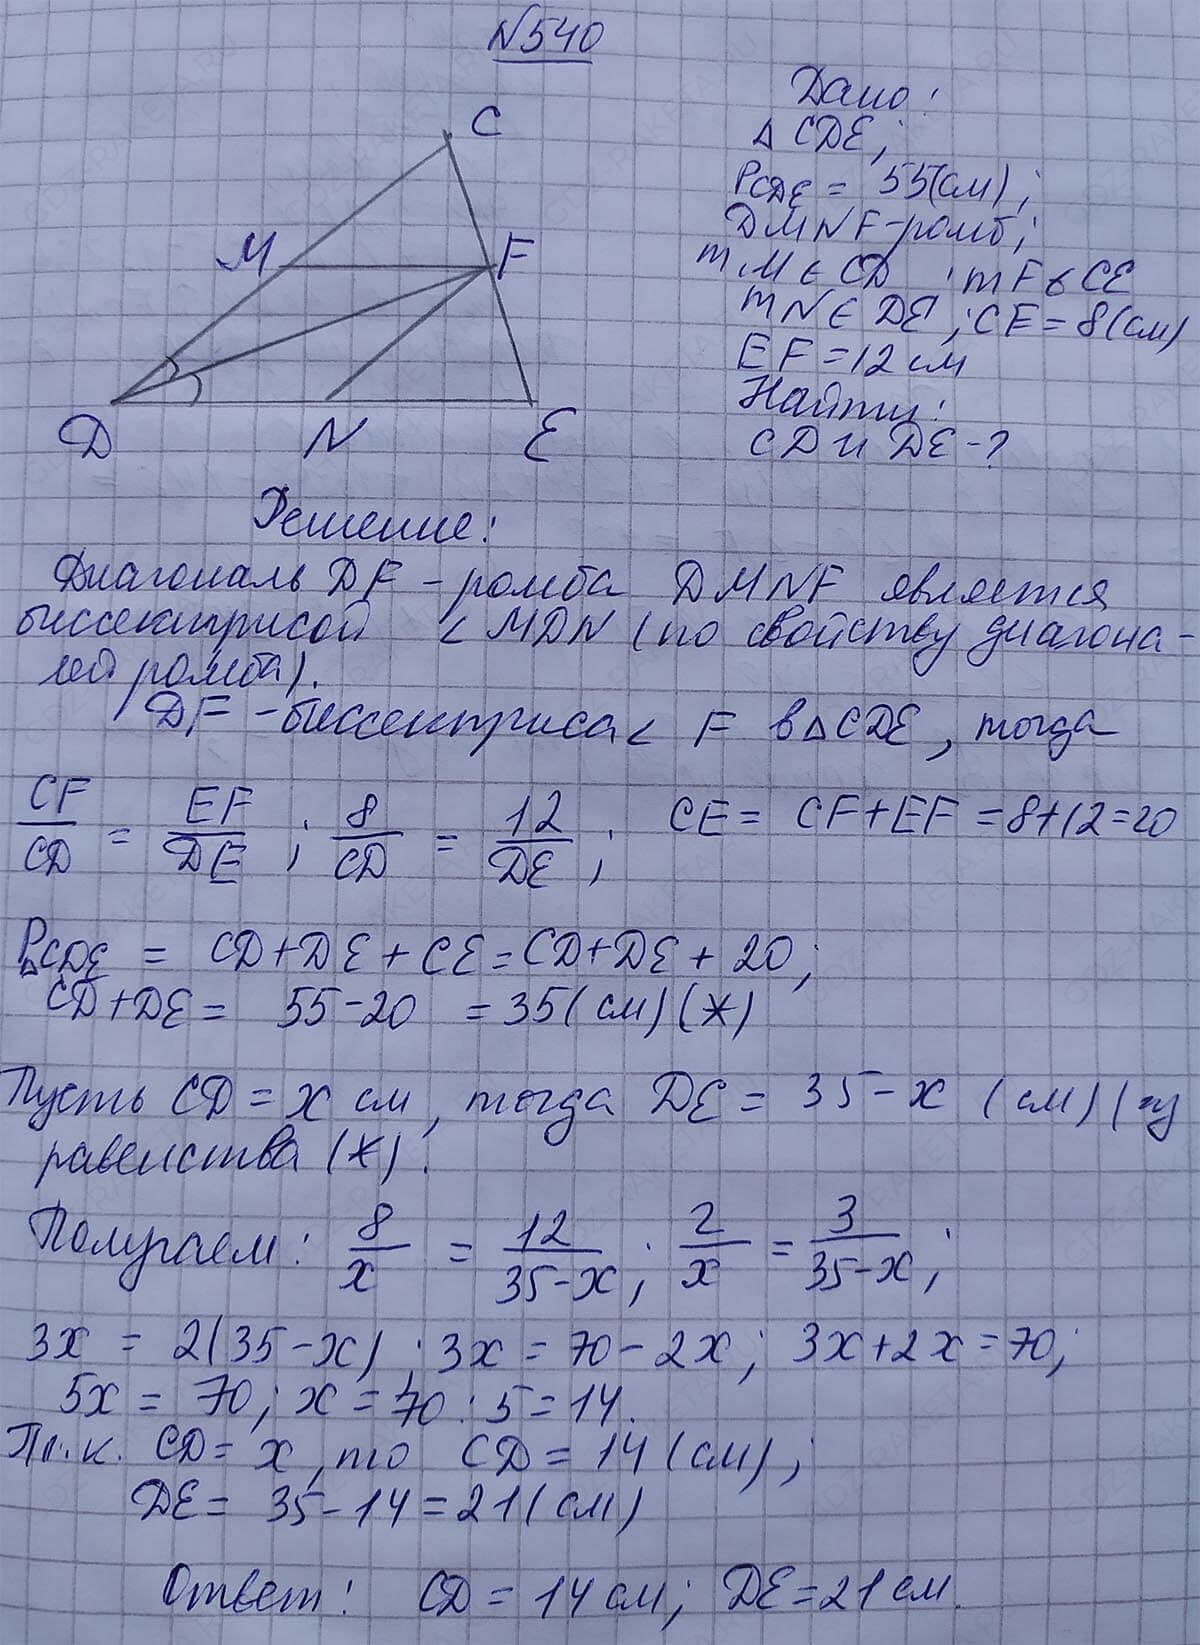 N540
C
M
F
D
N
E
Дано:
△ CDE;
P CDE = 55(см);
DMNF-ромб;
т M ∈ CD ; т F ∈ CE
т N ∈ DE ; CF = 8(см)
EF = 12 см
Найти:
CD и DE - ?
Решение:
Диагональ DF - ромба DMNF является
биссектрисой < MDN (по свойству диагона-
лей ромба).
DF - биссектриса < F в △ CDE, тогда
CF/CD = EF/DE ; 8/CD = 12/DE ; CE = CF + EF = 8+12=20
P△CDE = CD + DE + CE = CD + DE + 20;
CD + DE = 55 - 20 = 35 (см) (*)
Пусть CD = x см, тогда DE = 35 - x (см) (из
равенства (*).
Получаем: 8/x = 12/35-x ; 2/x = 3/35-x ;
3x = 2(35-x) ; 3x = 70 - 2x; 3x + 2x = 70;
5x = 70; x = 70 : 5 = 14.
Т. к. CD = x, то CD = 14 (см);
DE = 35 - 14 = 21 (см)
Ответ: CD = 14 см; DE = 21 см.